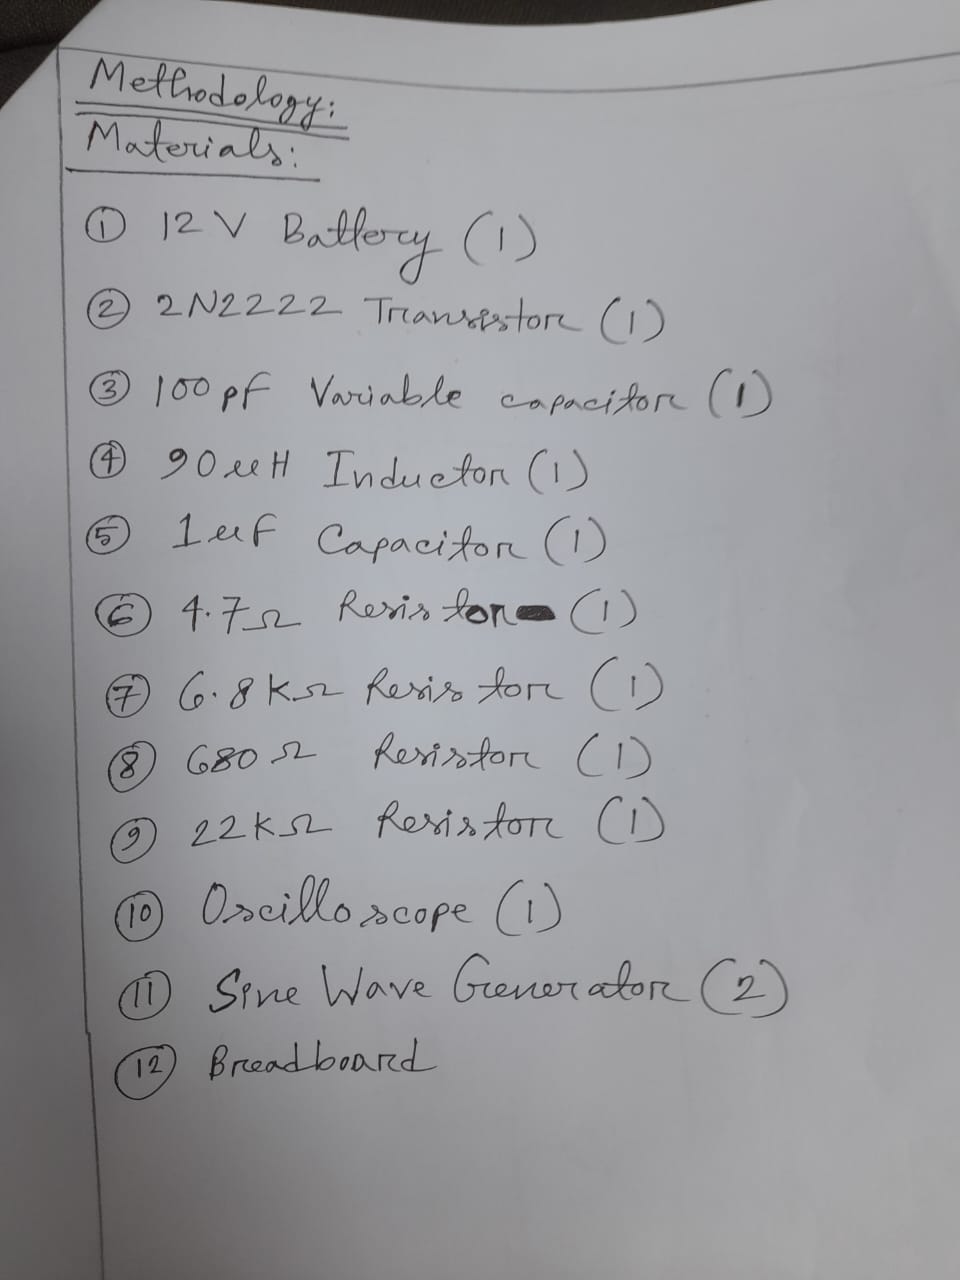 Methodology:
Materials:
① 12 V Battery (1)
② 2N2222 Transistor (1)
③ 100 pF Variable capacitor (1)
④ 90 uH Inductor (1)
⑤ 1 uF Capacitor (1)
⑥ 4.7Ω Resistor (1)
⑦ 6.8 KΩ Resistor (1)
⑧ 680 Ω Resistor (1)
⑨ 22KΩ Resistor (1)
⑩ Oscilloscope (1)
⑪ Sine Wave Generator (2)
⑫ Breadboard